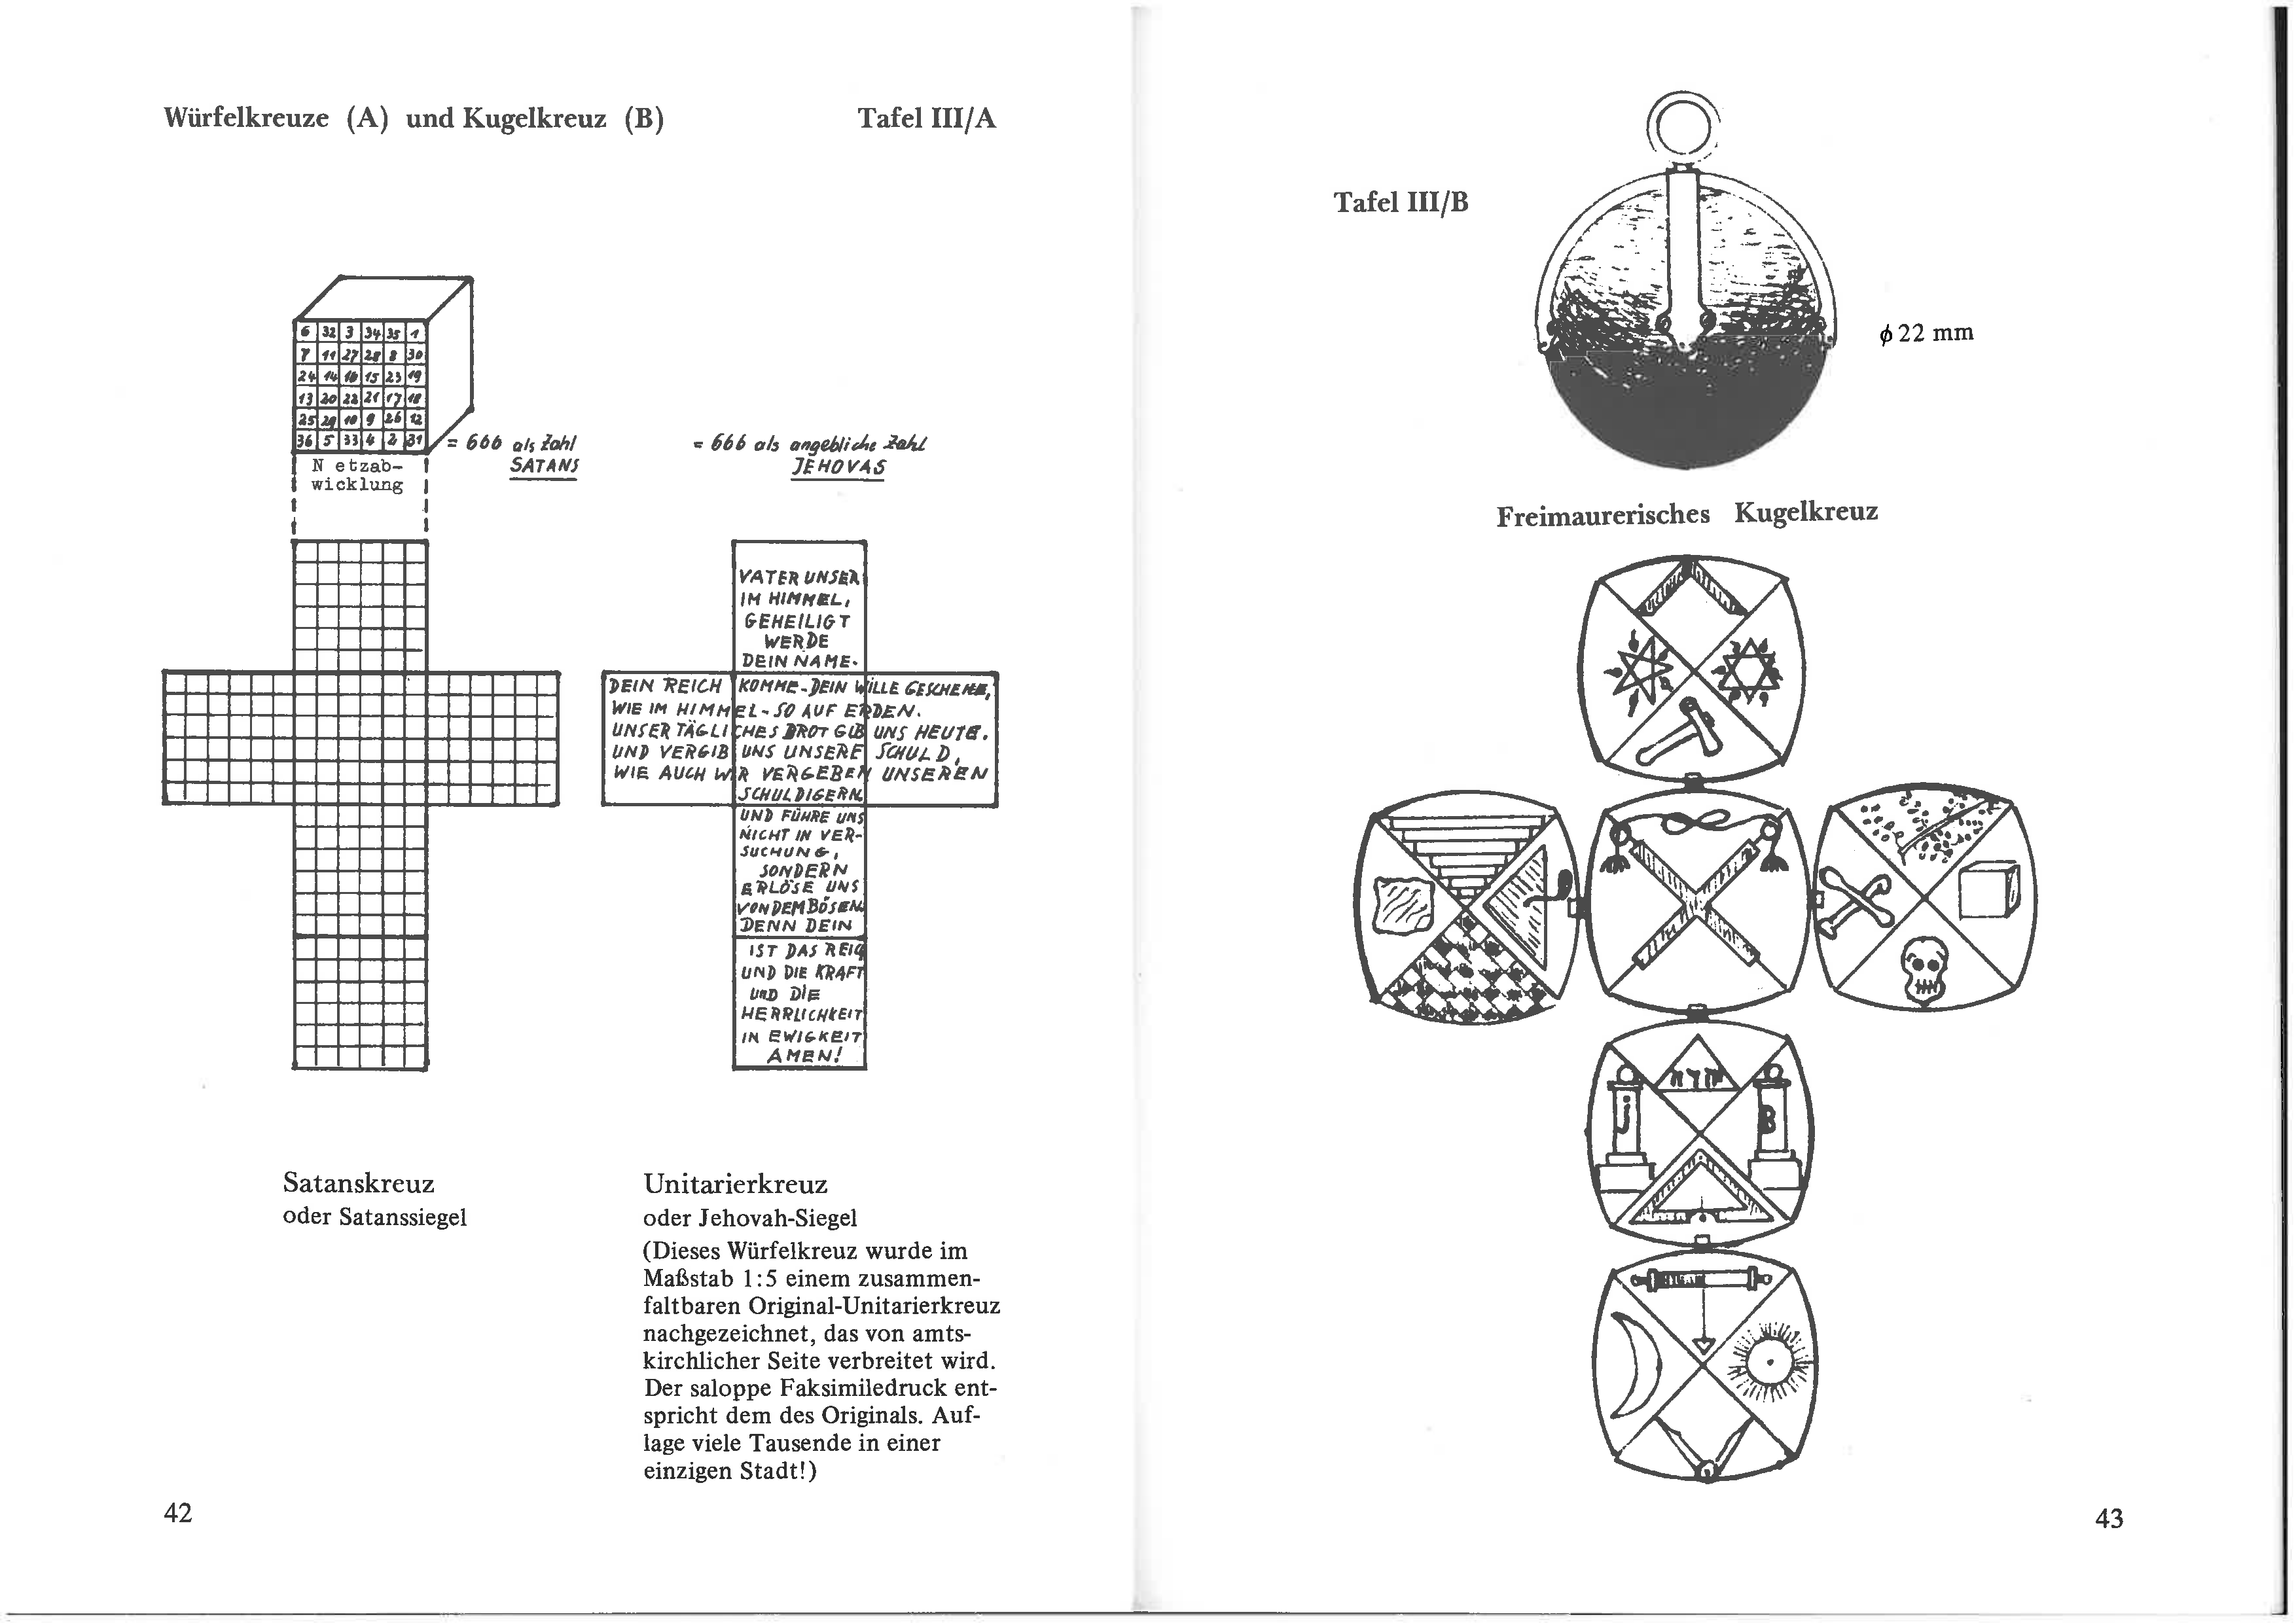 Würfelkreuze (A) und Kugelkreuz (B) Tafel III/A
6 32 3 34 35 1
7 11 27 28 8 30
24 14 16 15 23 19
13 20 22 21 17 18
25 29 10 9 26 12
36 5 33 4 2 31
= 666 als Zahl
SATANS
Netzab-
wicklung
= 666 als angebliche Zahl
JEHOVAS
VATER UNSER
IM HIMMEL,
GEHEILIGT
WERDE
DEIN NAME.
DEIN REICH KOMME-DEIN WILLE GESCHEHE,
WIE IM HIMMEL-SO AUF ERDEN.
UNSER TÄGLICHES BROT GIB UNS HEUTE.
UND VERGIB UNS UNSERE SCHULD,
WIE AUCH WIR VERGEBEN UNSEREN
SCHULDIGERN.
UND FÜHRE UNS
NICHT IN VER-
SUCHUNG,
SONDERN
ERLÖSE UNS
VON DEM BÖSEN
DENN DEIN
IST DAS REICH
UND DIE KRAFT
UND DIE
HERRLICHKEIT
IN EWIGKEIT
AMEN!
Satanskreuz
oder Satanssiegel
Unitarierkreuz
oder Jehovah-Siegel
(Dieses Würfelkreuz wurde im
Maßstab 1:5 einem zusammen-
faltbaren Original-Unitarierkreuz
nachgezeichnet, das von amts-
kirchlicher Seite verbreitet wird.
Der saloppe Faksimiledruck ent-
spricht dem des Originals. Auf-
lage viele Tausende in einer
einzigen Stadt!)
42
Tafel III/B
ϕ 22 mm
Freimaurerisches Kugelkreuz
J B
43